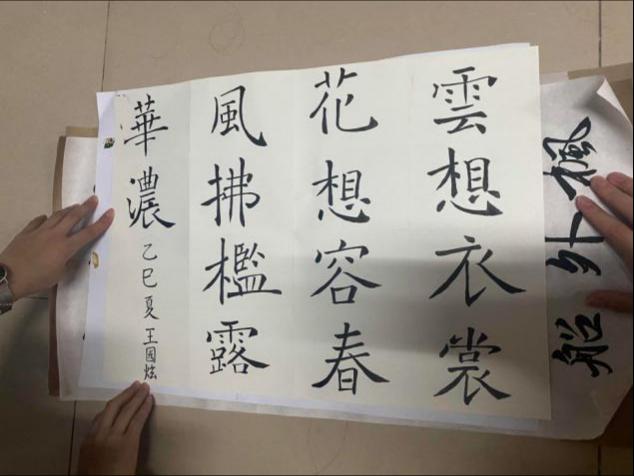 雲想衣裳
花想容春
風拂檻露
華濃
乙巳夏王國炫
船外楓